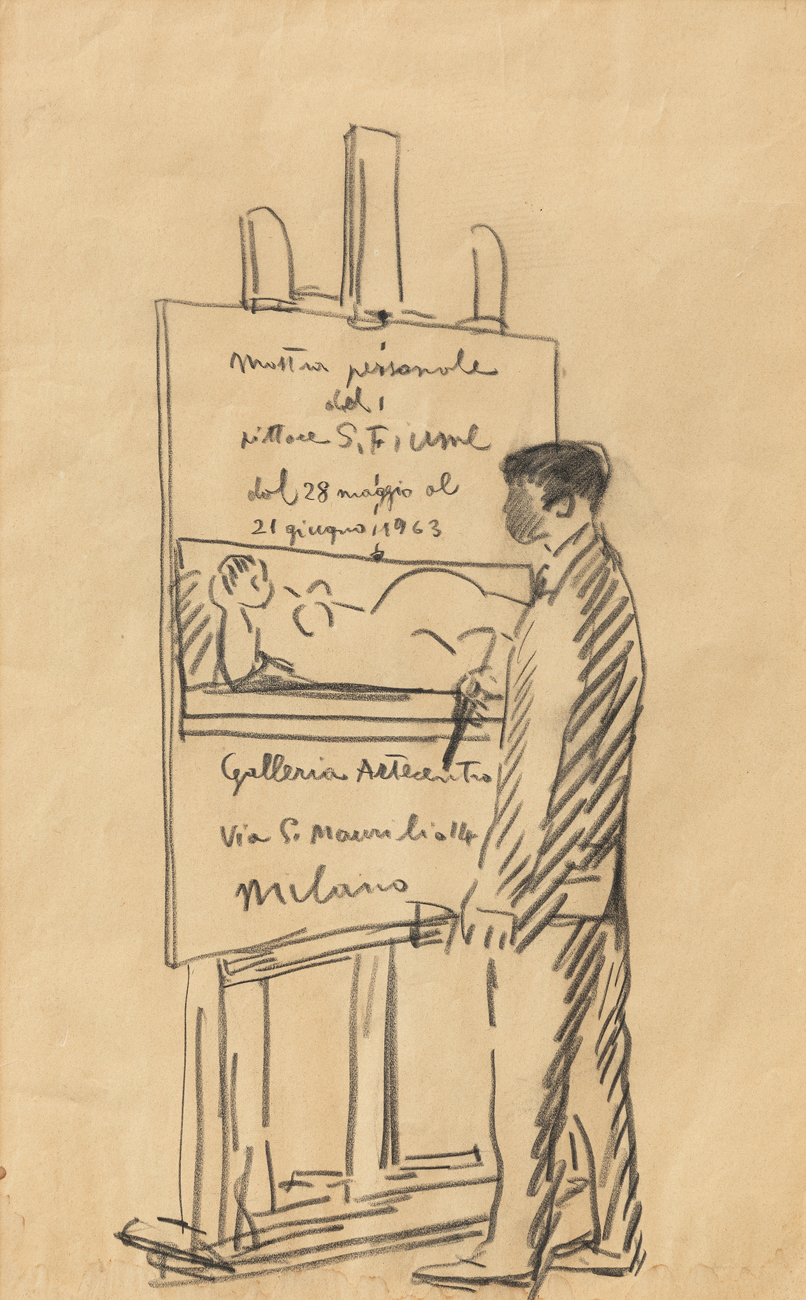 Mostra personale
del
pittore S. Fiume
dal 28 maggio al
21 giugno 1963
Galleria Artecentro
Via S. Maurilio 14
Milano